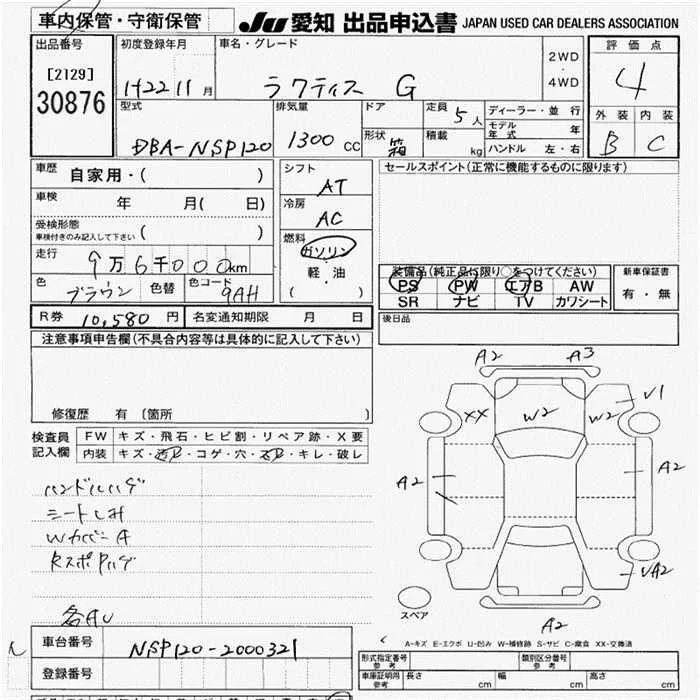 車内保管・守衛保管
JU 愛知 出品申込書 JAPAN USED CAR DEALERS ASSOCIATION
出品番号
[2129]
30876
初度登録年月
H22 11 月
車名・グレード
ラクティス G
2WD
・
4WD
評価点
4
外装 内装
B C
型式
DBA-NSP120
排気量
1300 cc
ドア
形状
箱
定員 5 人
積載 kg
ディーラー・並行
モデル年式 年
ハンドル 左・右
車歴 自家用・( )
車検 年 月( 日)
受検形態
車検付きのみ記入して下さい ( )
走行 9万6千000km
色 ブラウン 色替 色コード 9AH
シフト
AT
冷房
AC
燃料
ガソリン
・
軽・油
( )
セールスポイント(正常に機能するものに限ります)
装備品(純正品に限り○をつけてください)
PS PW エアB AW
SR ナビ TV カワシート
新車保証書
有・無
R券 10,580 円 名変通知期限 月 日
後日品
注意事項申告欄(不具合内容等は具体的に記入して下さい)
修復歴 有 〔箇所 〕
検査員
記入欄
FW キズ・飛石・ヒビ割・リペア跡・X要
内装 キズ・汚B・コゲ・穴・スB・キレ・破レ
ハンドルハゲ
シートしみ
WカバーA
各AU
A2 A3
XX W2 W2 V1
A2 A2
VA2
A2
スペア
A-キズ E-エクボ U-凹み W-補修跡 S-サビ C-腐食 XX-交換済
車台番号 NSP120-2000321
登録番号
形式指定番号
参考
類別区分番号
参考
車庫証明用
参考
長さ cm 幅 cm 高さ cm